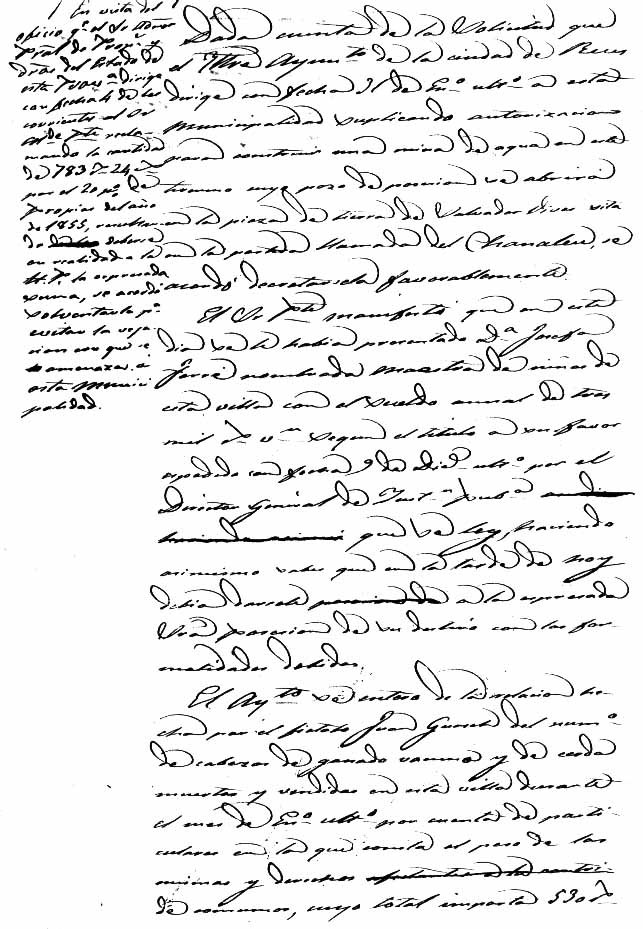 En vista del
oficio q.e el Sr. Admor
Pral de Prop.s y
dros del Estado de
esta Prov.a dirige
con fecha 4 de los
corrientes al Sr
Alc.de P.te recla-
mando la cantidad
de 783 r.s 24 m.s
por el 20 p.o de
Propios del año
de 1855, resultan-
do deberse
en realidad a la
H. P. la espresada
suma, se acordó
solventarla p.a
evitar la veja-
cion con que se
amenaza a
esta Munici-
palidad.
Dada cuenta de la Solicitud que
el Ittre Ayun.to de la ciudad de Reus
dirige con fecha 31 de En.o ult.o a esta
Municipalidad suplicando autorizacion
para construir una mina de agua en este
termino cuyo pozo de posecion se abrirá
en la pieza de tierra de Salvador Vivas sita
en la partida llamada del Chanaleu, se
acordó decretarsela favorablemente.
El Sr P.te manifestó que en este
dia se le habia presentado D.a Josefa
Ferré nombrada maestra de niñas de
esta villa con el sueldo anual de tres
mil r.s v.n segun el titulo a su favor
espedido con fecha 9 de Dic.e ult.o por el
Director General de Inst.n pub.ca
que se leyó, haciendo
asimismo saber que en la tarde de hoy
debia darsele a la espresada
Sra. posecion de su destino con las for-
malidades debidas.
El Ay.to se enteró de la relacion he-
cha por el fielato Juan Guasch del num.o
de cabezas de ganado vacuno y de cerda
muertas y vendidas en esta villa durante
el mes de En.o ult.o por cuenta de parti-
culares en la que consta el peso de las
mismas y derechos
de consumos, cuyo total importa 530 r.s